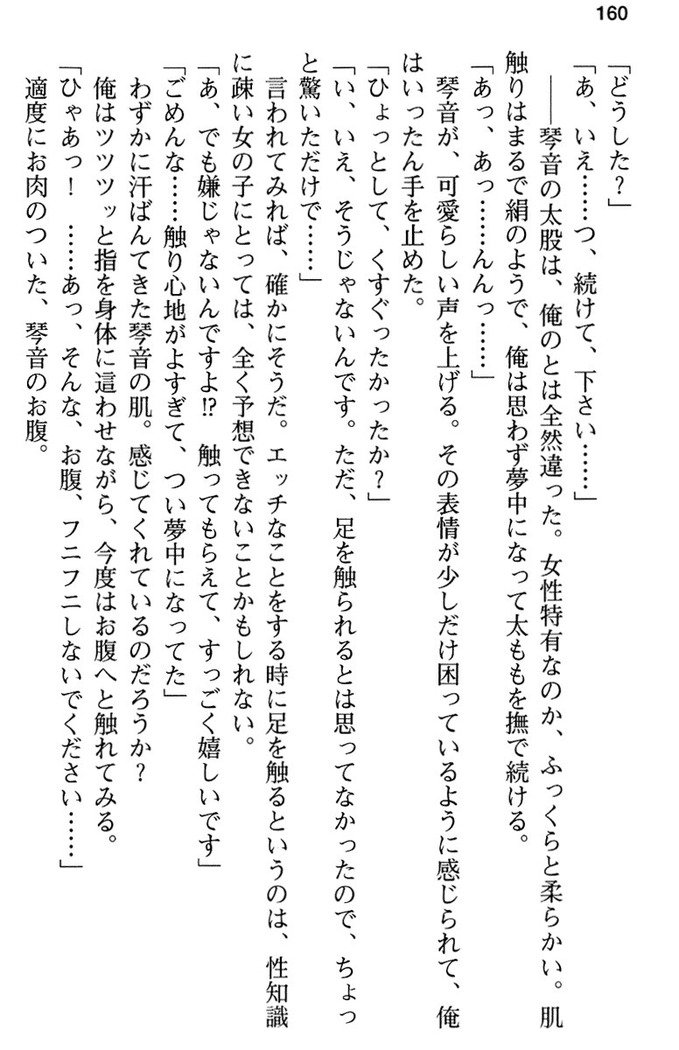 160
「どうした？」
「あ、いえ……つ、続けて、下さい……」
――琴音の太股は、俺のとは全然違った。女性特有なのか、ふっくらと柔らかい。肌
触りはまるで絹のようで、俺は思わず夢中になって太ももを撫で続ける。
「あっ、あっ……んんっ……」
琴音が、可愛らしい声を上げる。その表情が少しだけ困っているように感じられて、俺
はいったん手を止めた。
「ひょっとして、くすぐったかったか？」
「い、いえ、そうじゃないんです。ただ、足を触られるとは思ってなかったので、ちょっ
と驚いただけで……」
言われてみれば、確かにそうだ。エッチなことをする時に足を触るというのは、性知識
に疎い女の子にとっては、全く予想できないことかもしれない。
「あ、でも嫌じゃないんですよ⁉　触ってもらえて、すっごく嬉しいです」
「ごめんな……触り心地がよすぎて、つい夢中になってた」
わずかに汗ばんてきた琴音の肌。感じてくれているのだろうか？
俺はツツツッと指を身体に這わせながら、今度はお腹へと触れてみる。
「ひゃあっ！　……あっ、そんな、お腹、フニフニしないでください……」
適度にお肉のついた、琴音のお腹。